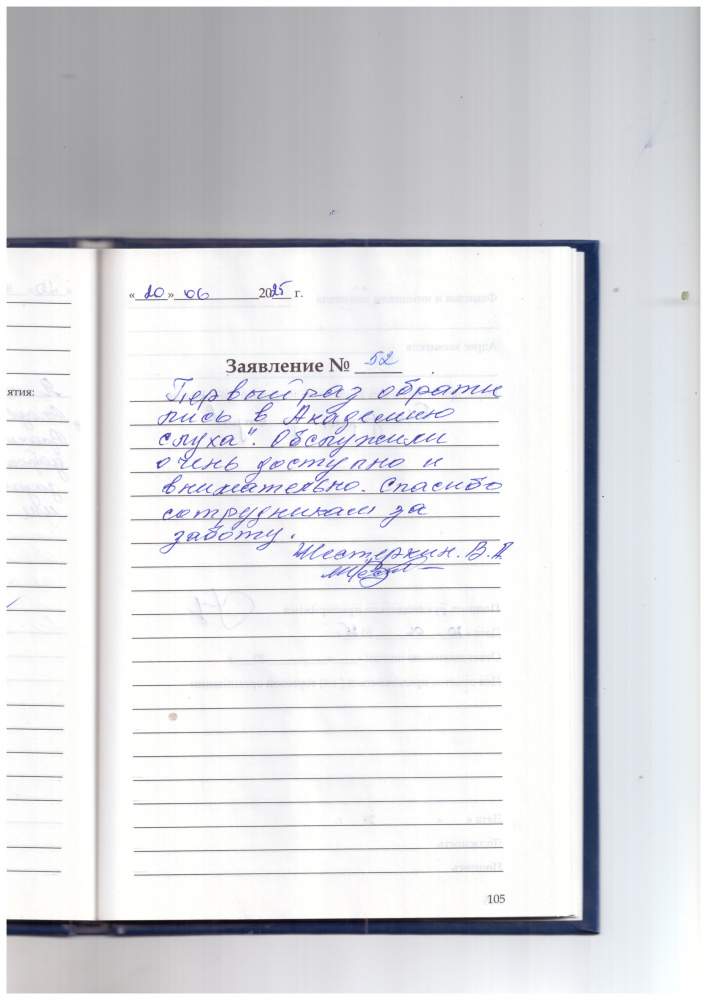 « 20 » 06 2025 г.
Заявление № 52
ятия:
Первый раз обрати
лись в Академию
слуха". Обслужили
очень доступно и
внимательно. Спасибо
сотрудникам за
заботу.
Шестеркин. В.П
105